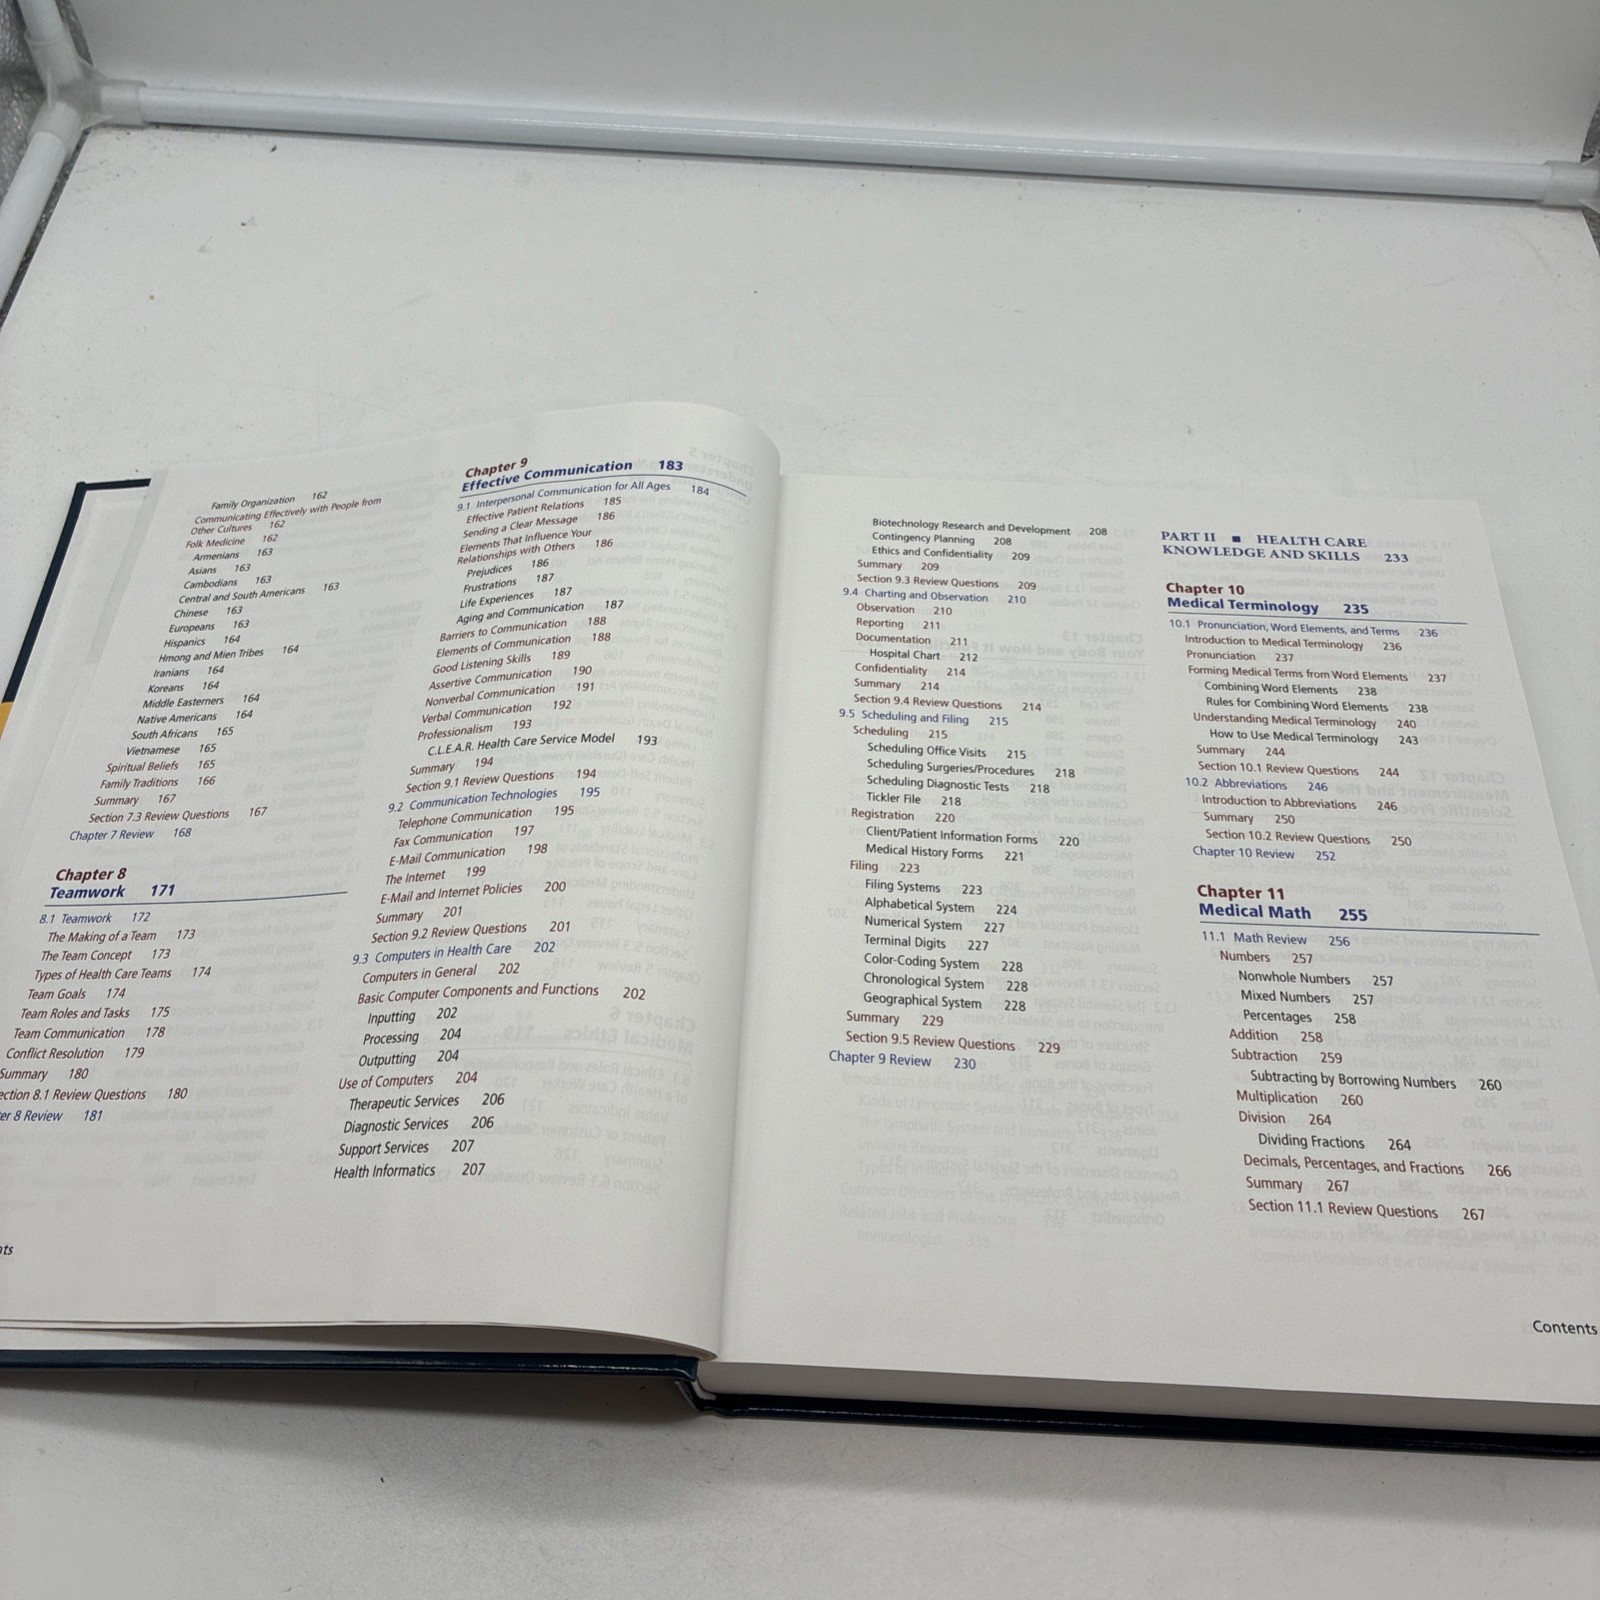 Family Organization 162
Communicating Effectively with People from
Other Cultures 162
Folk Medicine 162
Armenians 163
Asians 163
Cambodians 163
Central and South Americans 163
Chinese 163
Europeans 163
Hispanics 164
Hmong and Mien Tribes 164
Iranians 164
Koreans 164
Middle Easterners 164
Native Americans 164
South Africans 165
Vietnamese 165
Spiritual Beliefs 165
Family Traditions 166
Summary 167
Section 7.3 Review Questions 167
Chapter 7 Review 168
Chapter 8
Teamwork 171
8.1 Teamwork 172
The Making of a Team 173
The Team Concept 173
Types of Health Care Teams 174
Team Goals 174
Team Roles and Tasks 175
Team Communication 178
Conflict Resolution 179
Summary 180
ection 8.1 Review Questions 180
er 8 Review 181
nts
Chapter 9
Effective Communication 183
9.1 Interpersonal Communication for All Ages 184
Effective Patient Relations 185
Sending a Clear Message 186
Elements That Influence Your
Relationships with Others 186
Prejudices 186
Frustrations 187
Life Experiences 187
Aging and Communication 187
Barriers to Communication 188
Elements of Communication 188
Good Listening Skills 189
Assertive Communication 190
Nonverbal Communication 191
Verbal Communication 192
Professionalism 193
C.L.E.A.R. Health Care Service Model 193
Summary 194
Section 9.1 Review Questions 194
9.2 Communication Technologies 195
Telephone Communication 195
Fax Communication 197
E-Mail Communication 198
The Internet 199
E-Mail and Internet Policies 200
Summary 201
Section 9.2 Review Questions 201
9.3 Computers in Health Care 202
Computers in General 202
Basic Computer Components and Functions 202
Inputting 202
Processing 204
Outputting 204
Use of Computers 204
Therapeutic Services 206
Diagnostic Services 206
Support Services 207
Health Informatics 207
Biotechnology Research and Development 208
Contingency Planning 208
Ethics and Confidentiality 209
Summary 209
Section 9.3 Review Questions 209
9.4 Charting and Observation 210
Observation 210
Reporting 211
Documentation 211
Hospital Chart 212
Confidentiality 214
Summary 214
Section 9.4 Review Questions 214
9.5 Scheduling and Filing 215
Scheduling 215
Scheduling Office Visits 215
Scheduling Surgeries/Procedures 218
Scheduling Diagnostic Tests 218
Tickler File 218
Registration 220
Client/Patient Information Forms 220
Medical History Forms 221
Filing 223
Filing Systems 223
Alphabetical System 224
Numerical System 227
Terminal Digits 227
Color-Coding System 228
Chronological System 228
Geographical System 228
Summary 229
Section 9.5 Review Questions 229
Chapter 9 Review 230
PART II ■ HEALTH CARE
KNOWLEDGE AND SKILLS 233
Chapter 10
Medical Terminology 235
10.1 Pronunciation, Word Elements, and Terms 236
Introduction to Medical Terminology 236
Pronunciation 237
Forming Medical Terms from Word Elements 237
Combining Word Elements 238
Rules for Combining Word Elements 238
Understanding Medical Terminology 240
How to Use Medical Terminology 243
Summary 244
Section 10.1 Review Questions 244
10.2 Abbreviations 246
Introduction to Abbreviations 246
Summary 250
Section 10.2 Review Questions 250
Chapter 10 Review 252
Chapter 11
Medical Math 255
11.1 Math Review 256
Numbers 257
Nonwhole Numbers 257
Mixed Numbers 257
Percentages 258
Addition 258
Subtraction 259
Subtracting by Borrowing Numbers 260
Multiplication 260
Division 264
Dividing Fractions 264
Decimals, Percentages, and Fractions 266
Summary 267
Section 11.1 Review Questions 267
Contents